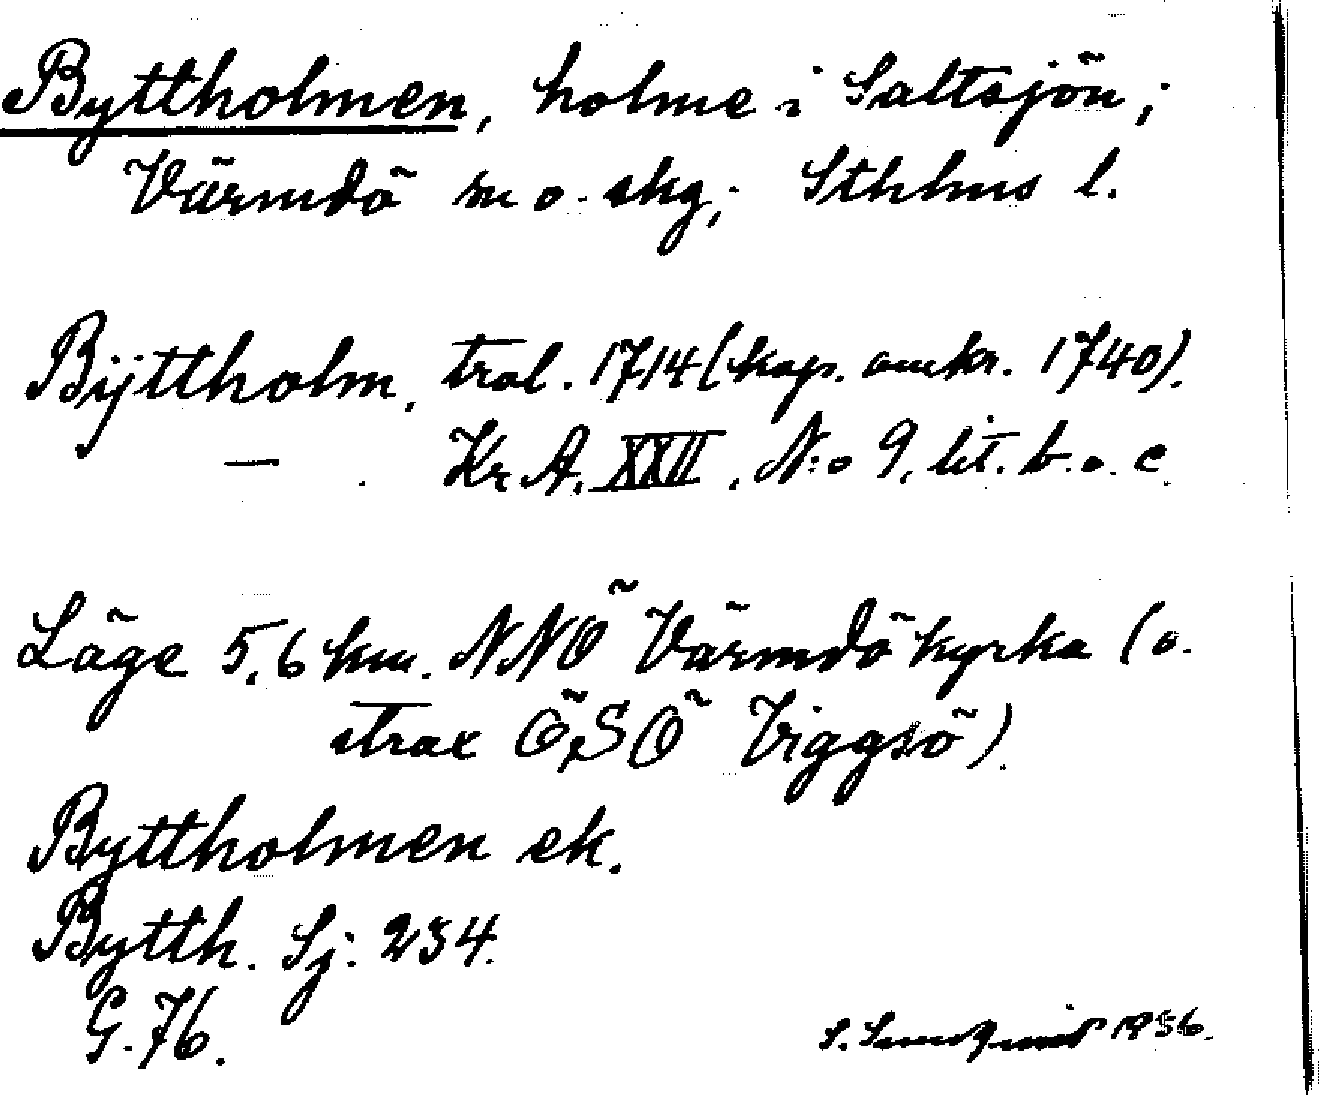 Byttholmen, holme i Saltsjön;
Värmdö sn o. skg; Sthlms l.
Bÿttholm, trol. 1714 (kop. omkr. 1740).
— . Kr. A. XXII, N:o 9, lit. b. o. c
Läge 5,6 km. NNÖ Värmdö kyrka (o.
strax ÖSÖ Viggsö).
Byttholmen ek.
Bytth. Sj: 234.
G. 76.
S. Sundquist 1936.